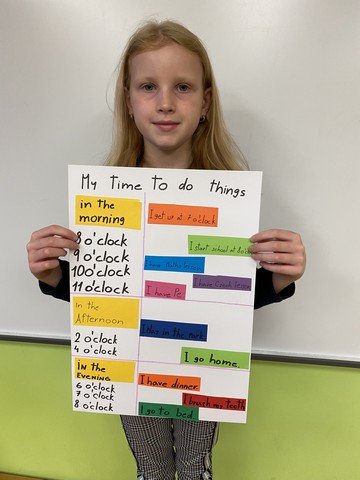 My Time To do things
in the morning
I get up at 7 o'clock
8 o'clock
I start school at 8 o'clo
9 o'clock
10 o'clock
I have Czech lesson
11 o'clock
I have Pe.
in the Afternoon
2 o'clock
in the park
4 o'clock
I go home.
in the EVENING
I have dinner.
6 o'clock
7 o'clock
I brush my teeth
8 o'clock
I go to bed.